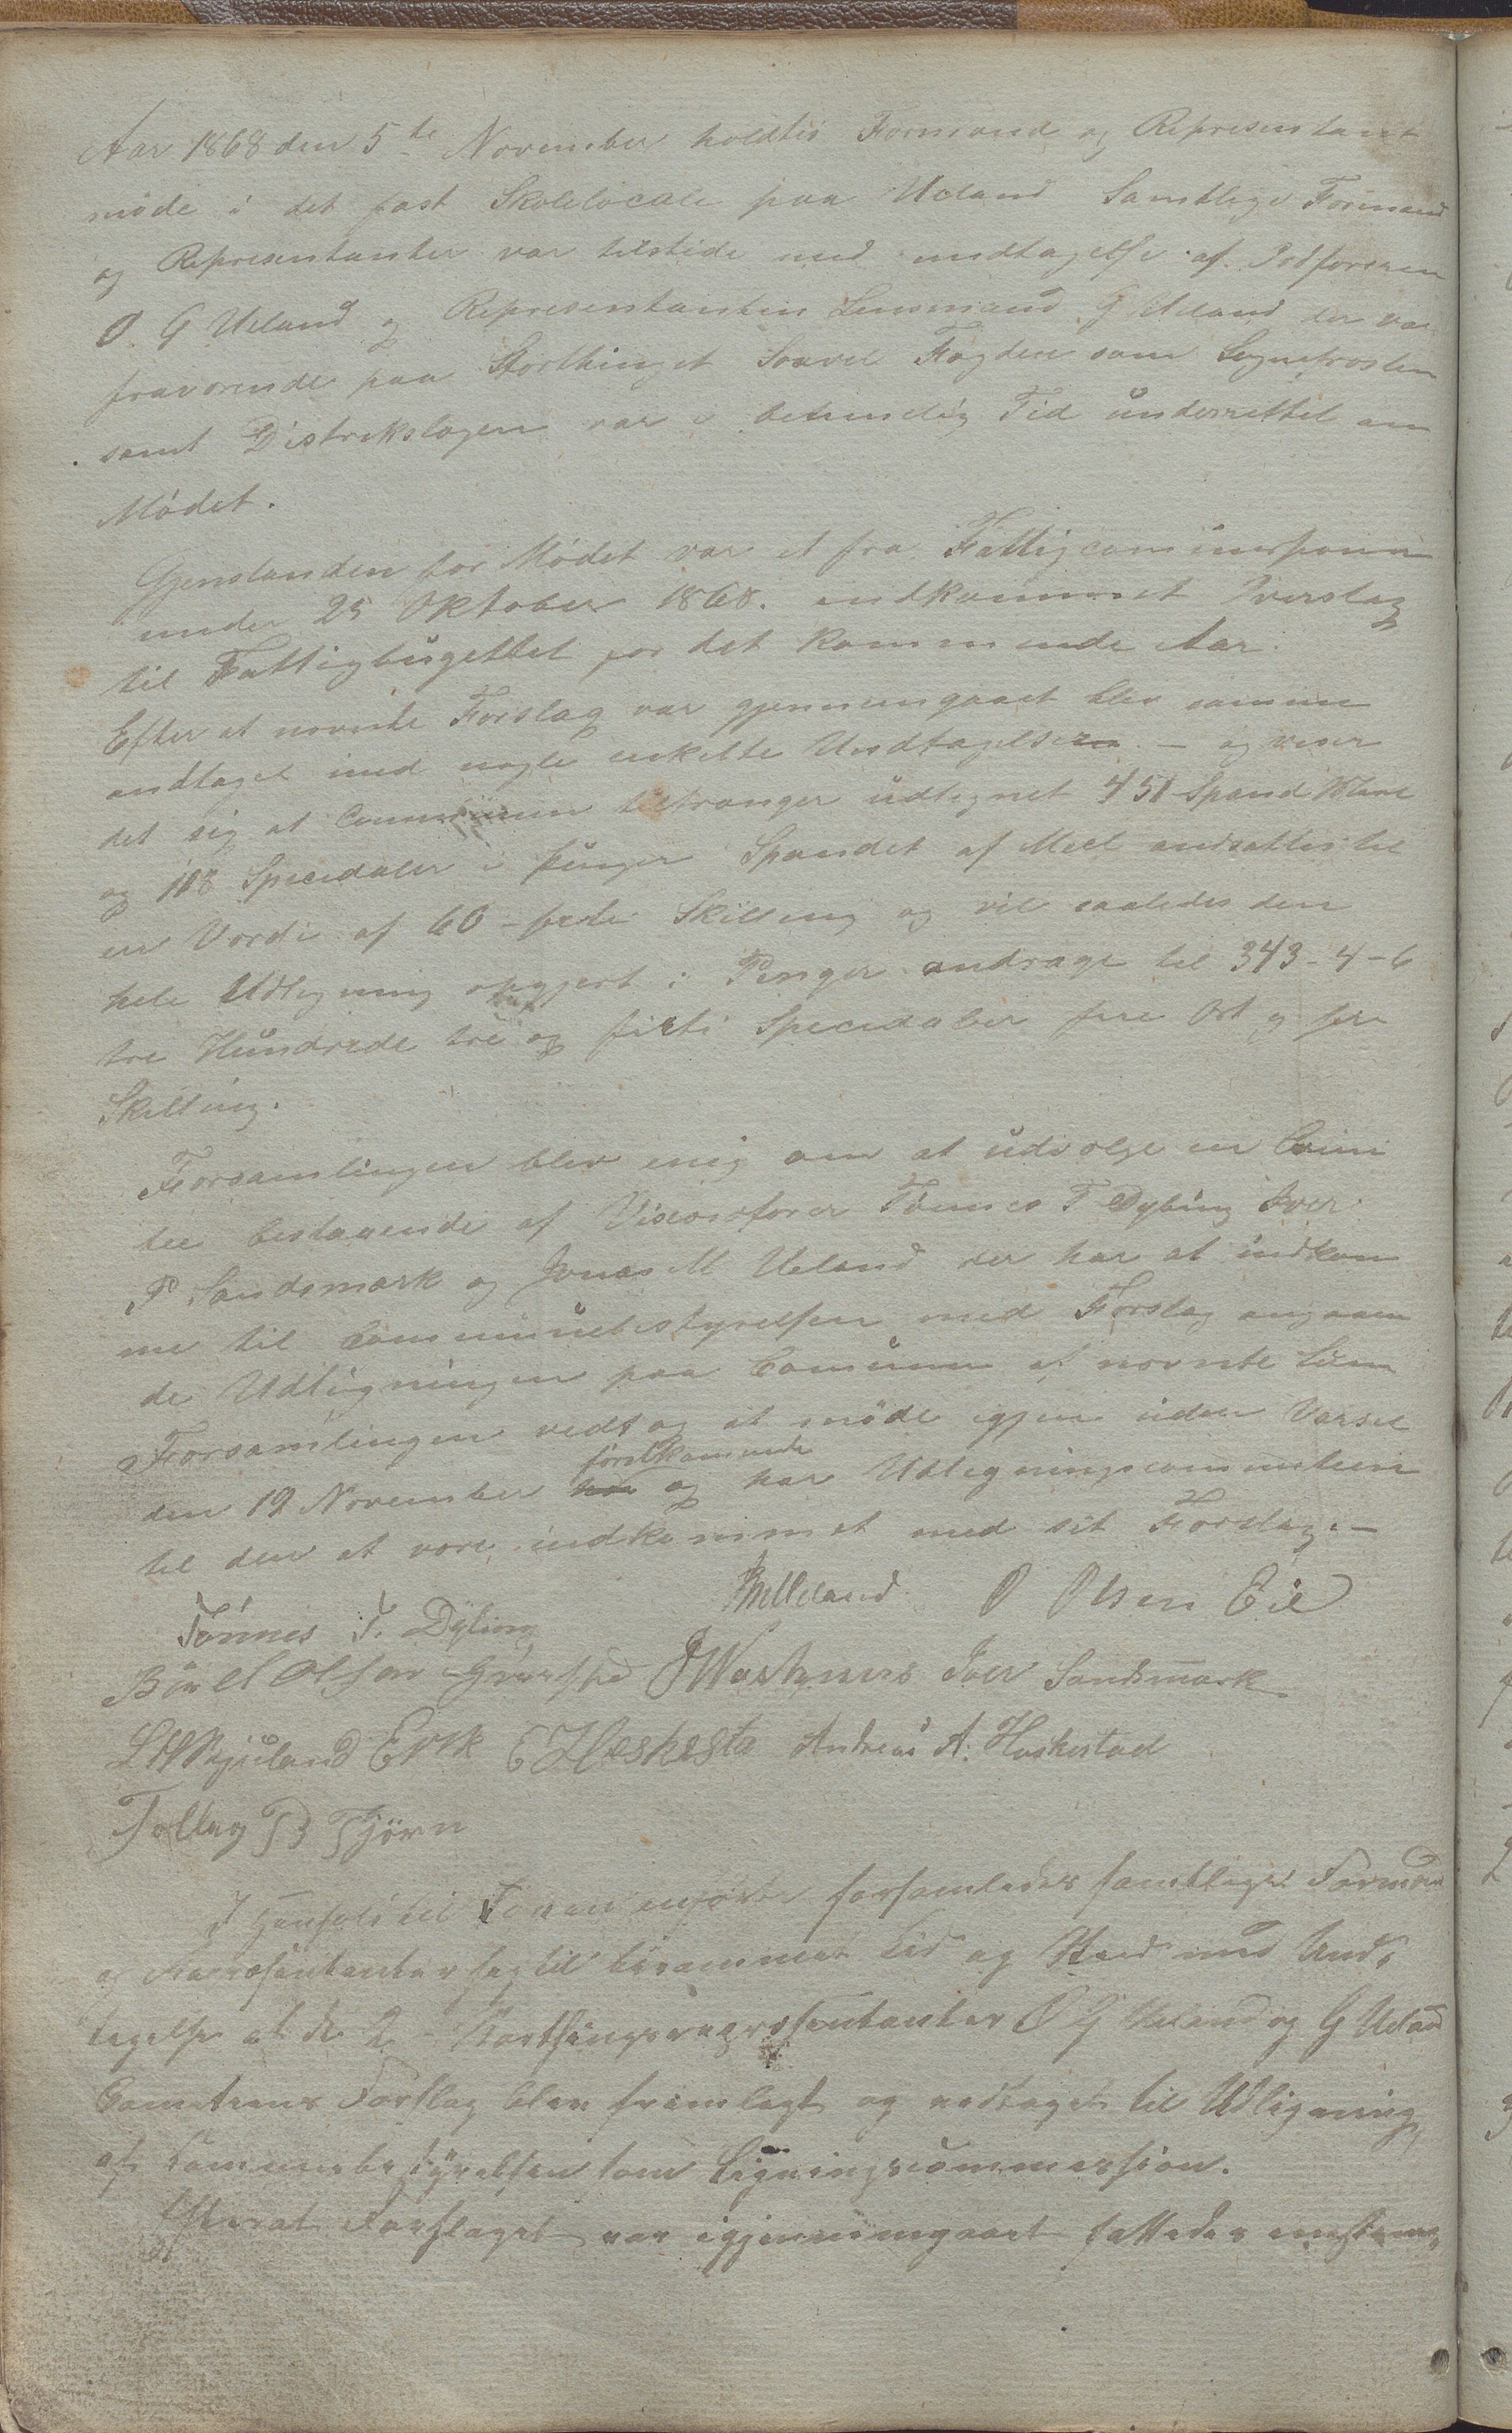 Aar 1868 den 5te November holdtes Formand og Representant
møde i det fast Skolelocale paa Ueland Samtlige Formænd
og Representanter var tilstede med undtagelse af Ordføreren
O. G Ueland og Representanten Lensmand G Ueland der var
fraværende paa Storthinget Saavel Fogden som Sognepresten
samt Distrikslægen var i betimelig Tid underrettet om
Mødet.
Gjenstanden for Mødet var et fra Fattigcommissionen
under 25 Oktober 1868. indkommet Overslag
til Fattigbugettet for det kommende Aar.
Efter at nævnte Forslag var gjennemgaaet blev samme
andtaget med nogle enkelte Undtagelser. – og viser
det sig at Communen tiltrænger udlignet 451 Spand Mæel
og 118 Specidaler i penger Spandet af Meel andsættes til
en Værdi af 60 – sexti Skilling og vil saaledes den
hele Udligning opgjort i Penger andrage til 343 – 4 – 6
tre Hundrede tre og firti Specidaler fire Ort og sex
Skilling.
Forsamlingen blev enig om at udvælge en Comi
tee bestaaende af Viseordfører Tønnes T Dybing Iver
P Sandsmark og Jonas M Ueland der har at indkom
me til Communebestyrelsen med Forslag angaaen
de Udligningen paa Comunen af nævnte Sum
Forsamlingen vedtog at møde igjen uden Varsel
den 19 November førstkommende og har Udligningscommiteen
til den at være indkommet med sit Forslag. –
Tønnes T. Dybing JMUeland O Olsen Eie
Boel Olsen O Wasshuus Iver Sandsmark
Erik E Heskestad Andreas A. Heskestad
Tollag B Tjørn
I Henhold til Foranførte forsamledes samtlige Formænd
og Repræsentanter sig til berammet Tid og Sted med Und-
tagelse af de 2 Storthingsrepræsentanter O G Ueland og G Ueland
Comiteens Forslag blev fremlagt og vedtaget til Udligning
af Communebestyrelsen som Ligningscommission.
Efterat Forslaget var igjennemgaaet fattedes enstem-